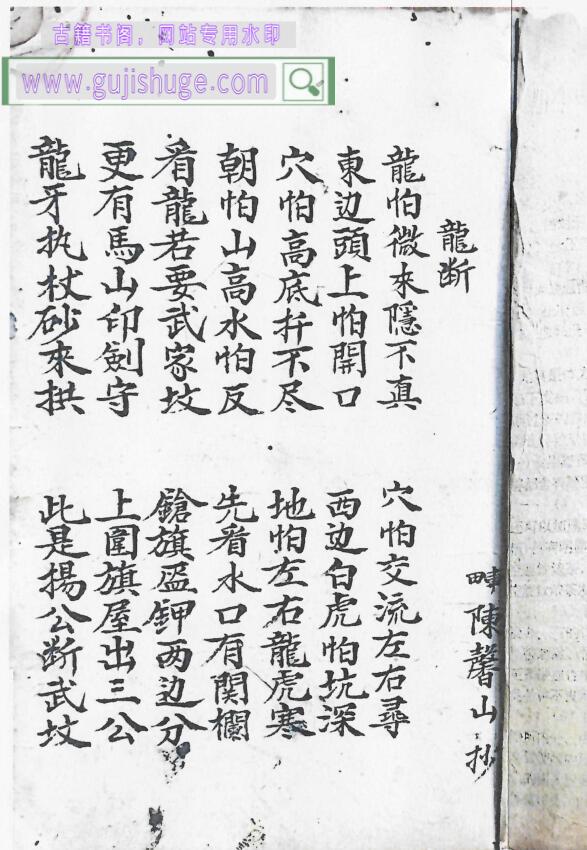 古籍书阁，网站专用水印
www.gujishuge.com
龍断
陳馨山抄
龍怕微來隱不真
穴怕交流左右尋
東边頭上怕開口
西边白虎怕坑深
穴怕高底扦不尽
地怕左右龍虎寒
朝怕山高水怕反
先看水口有関欄
看龍若要武家坟
鎗旗盔鉀两边分
更有馬山印劍守
上圍旗屋出三公
龍牙执杖砂來拱
此是揚公断武坟